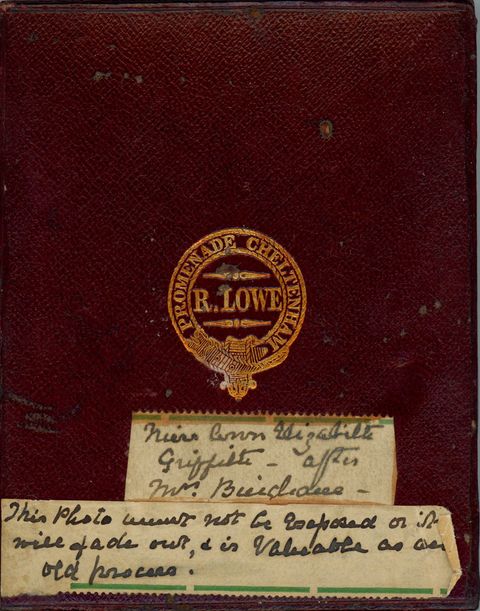 PROMENADE CHELTENHAM
R. LOWE
Miss Ann Elizabeth
Griffith - after
Mrs.
This Photo must not be Exposed or it
will fade out, & is Valuable as an
old process.